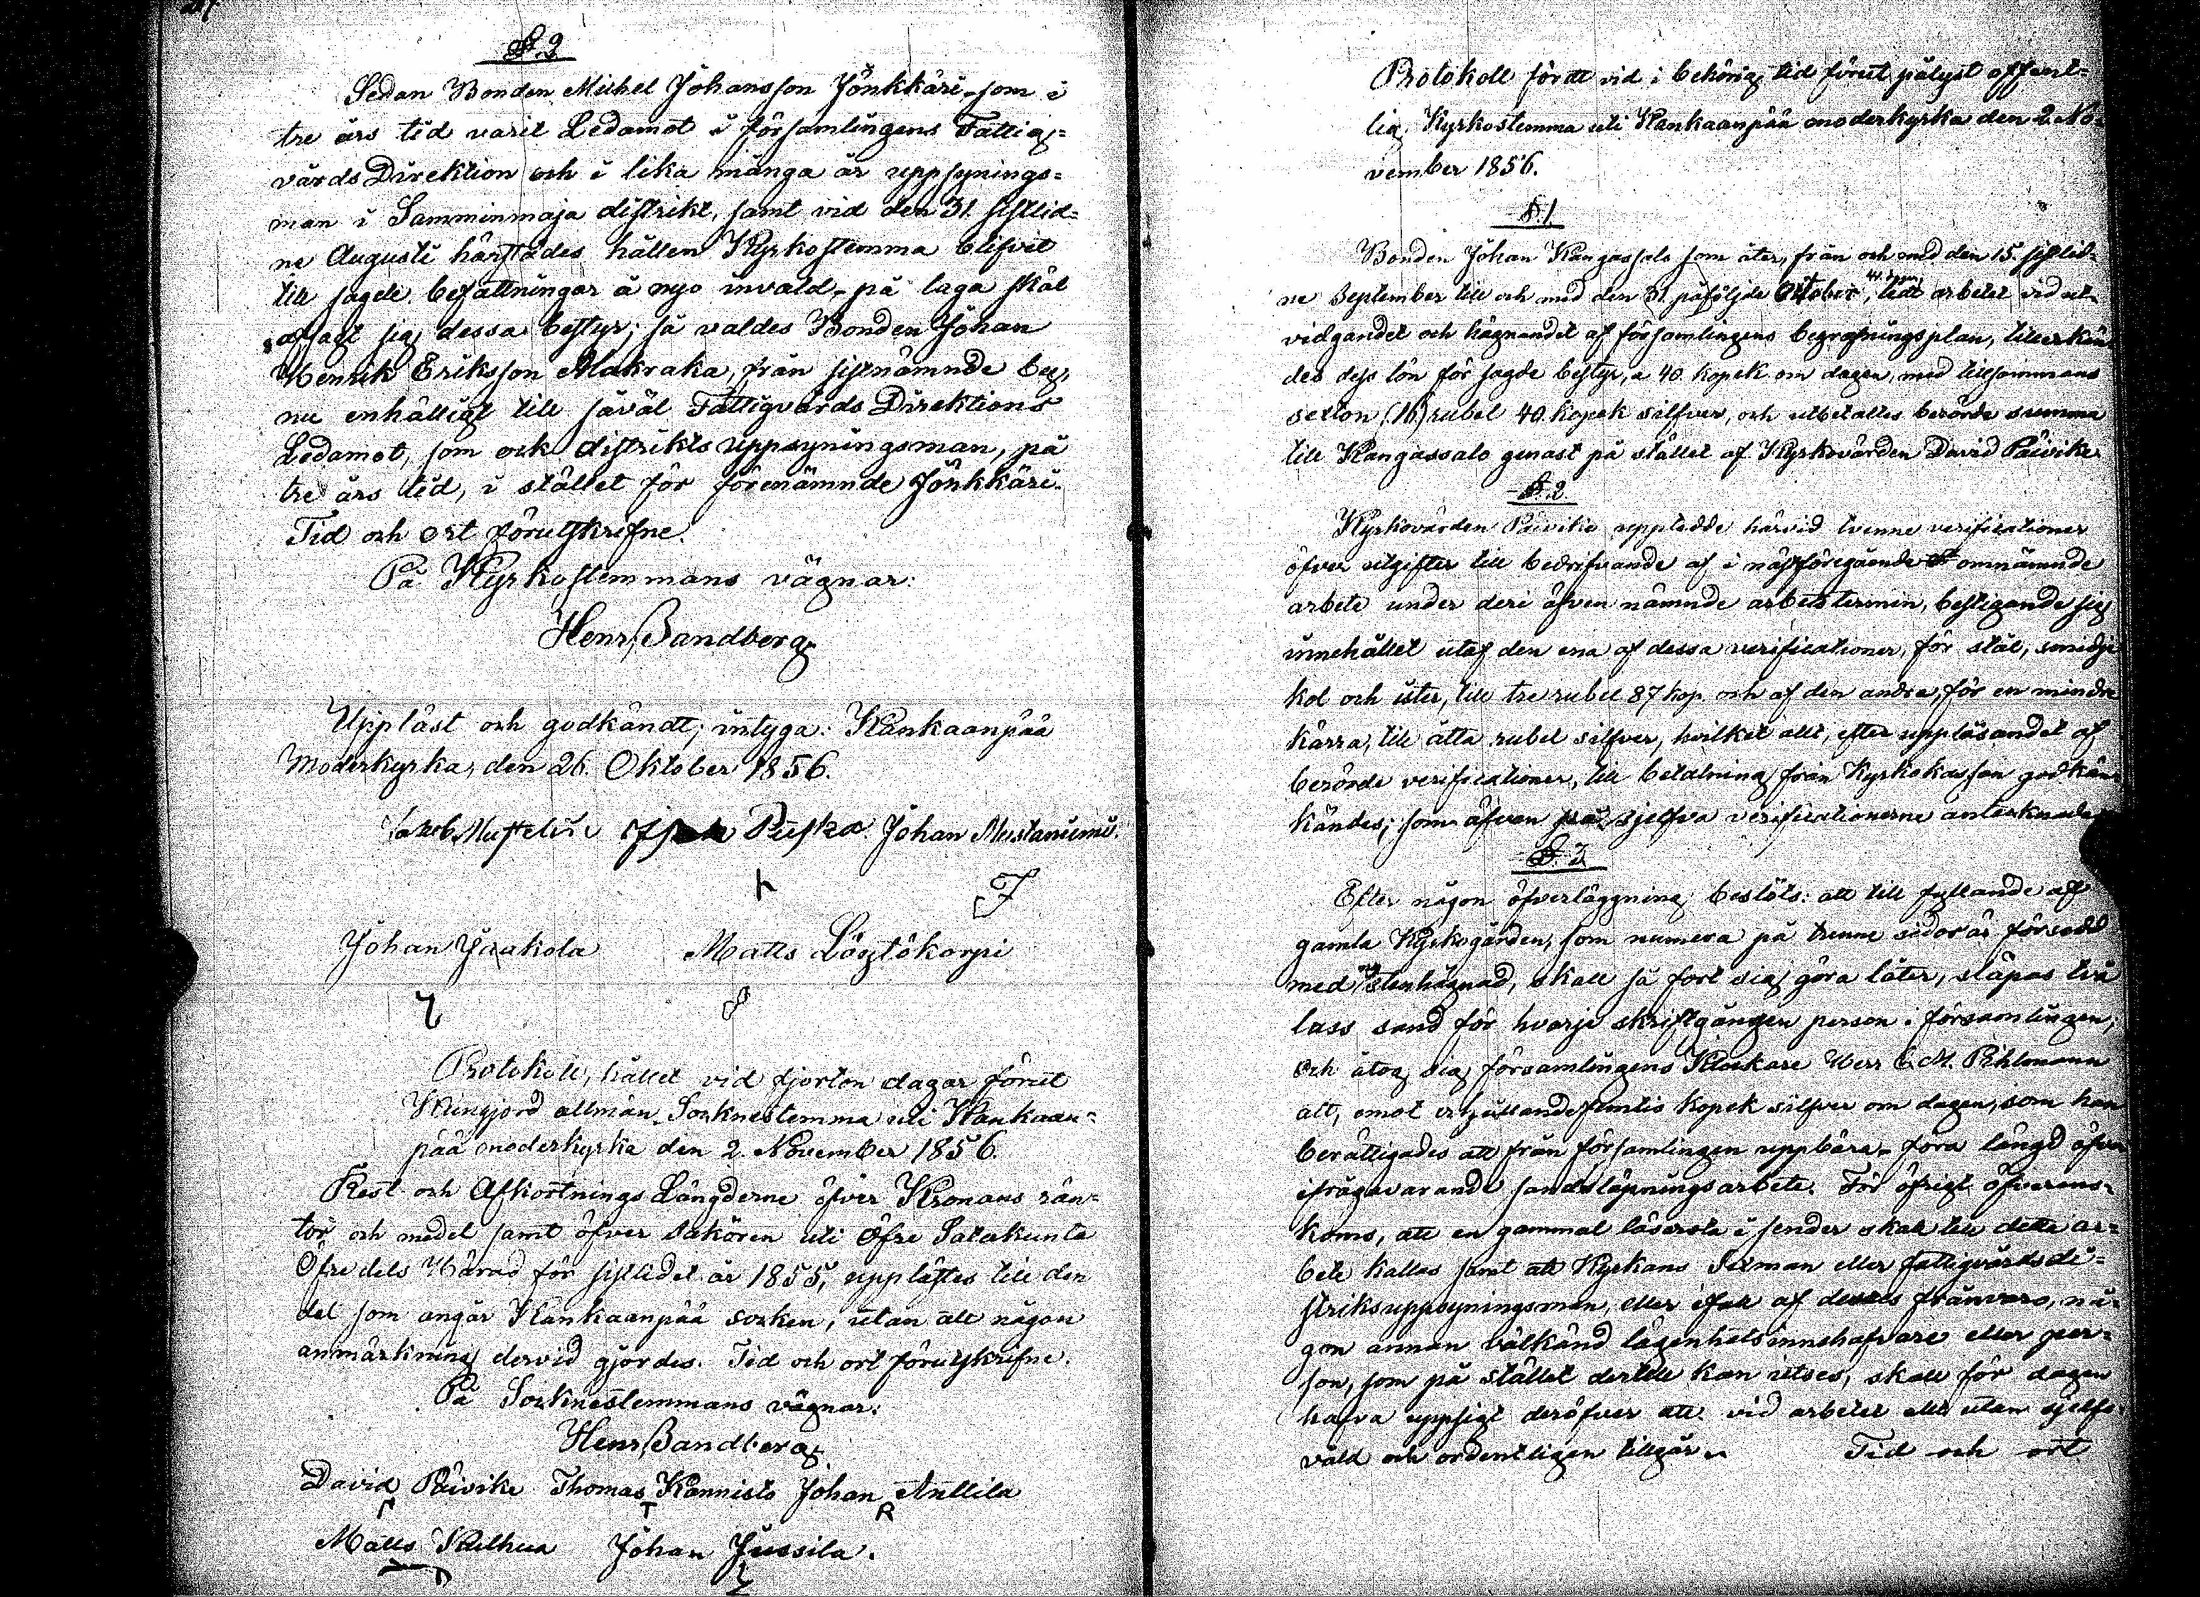 §. 2.
Sedan Bonden Michel Johansson Jönkkäri som i
tre års tid varit Ledamot i församlingens Fattig-
vårds Direktion och i lika många år uppsynings-
man i Samminmaja distrikt, samt vid den 31. sistlid-
ne Augusti härstädes hållen Kyrkostemma blifvit
till sagde befattningar å nyo invald på laga skäl
afsagt sig dessa bestyr; så valdes Bonden Johan
Henrik Eriksson Makraka, från sistnämnde
nu enhälligt till såväl Fattigvårds Direktions
Ledamot, som ock distrikts uppsyningsman, på
tre års tid, i stället för förenämnde Jönkkäri.
Tid och ort förutskrifne.
På Kyrkostemmans vägnar:
Henr. Sandberg
Uppläst och godkändt; intyga: Kankaanpää
Moderkyrka, den 26. Oktober 1856.
Jakob Johan Mustaniemi.
Johan Jaakola Matts Löytökorpi
Protokoll, hållet vid fjorton dagar förut
kungjord allmän Socknestemma uti Kankaan-
pää moderkyrka den 2. November 1856.
Rest- och Afkortnings Längderne öfver Kronans rän-
tor och medel samt öfver saköron uti Öfre Satakunta
Öfredels Härad för sistlidet år 1855, upplästes till den
del som angår Kankaanpää socken, utan att någon
anmärkning dervid gjordes. Tid och ort förutskrifne.
På Socknestemmans vägnar:
Henr. Sandberg.
David Päivike Thomas Kannisto Johan Anttila
Matts Johan Jussila.
Protokoll fördt vid i behörig tid förut pålyst offent-
lig Kyrkostemma uti Kankaanpää moderkyrka den 2. No-
vember 1856.
§. 1.
Bonden Johan Kangassalo som åter, från och med den 15. sistlid-
ne September till och med den 31. påföljde Oktober, ledt arbetet vid ut-
vidgandet och hägnandet af församlingens begrafningsplan, tillerkän-
des dess lön för sagde bestyr, a 40. kopek om dagen, med tillsammans
sexton (16) rubel 40. kopek silfver, och utbetaltes berörde summa
till Kangassalo genast på stället af Kyrkovärden David Päivike.
§. 2.
Kyrkovärden Päivike upptedde härvid tvenne verificationer
öfver utgifter till bedrifvande af i nästföregående § omnämnde
arbete under deri äfven nämnde arbetstermin, bestigande sig
innehållet utaf den ena af dessa verificationer, för stål, smidje
kol och ister, till tre rubel 87 kop. och af den andra, för en mindre
kärra, till åtta rubel silfver, hvilket allt, efter uppläsandet af
berörde verificationer, till betalning från Kyrkokassan godkän-
kändes; som äfven på sjelfva verificationerne antecknades
§. 3.
Efter någon öfverläggning beslöts: att till fyllande af
gamla Kyrkogården, som numera på trenne sidor är försedd
med stenhägnad, skall så fort sig göra låter, släpas två
lass sand för hvarje skriftgången person i församlingen;
och åtog sig församlingens Klockare Herr C. M. Pihlmann
att, emot erhållande femtio kopek silfver om dagen, som han
berättigades att från församlingen uppbära föra längd öfver
ifrågavarande sandsläpningsarbete. För öfrigt öfverens-
koms, att en gammal läserota i sender skall till detta ar-
bete kallas samt att Kyrkans Sexman eller fattigvårdsdi-
striksuppsyningsman, eller ifall af desses frånvaro, nå-
gon annan välkänd lägenhetsinnehafvare eller per-
son, som på stället dertill kan utses, skall för dagen
hafva uppsigt deröfver att vid arbetet allt utan sjelfs-
våld och ordentligen tillgår. Tid och ort